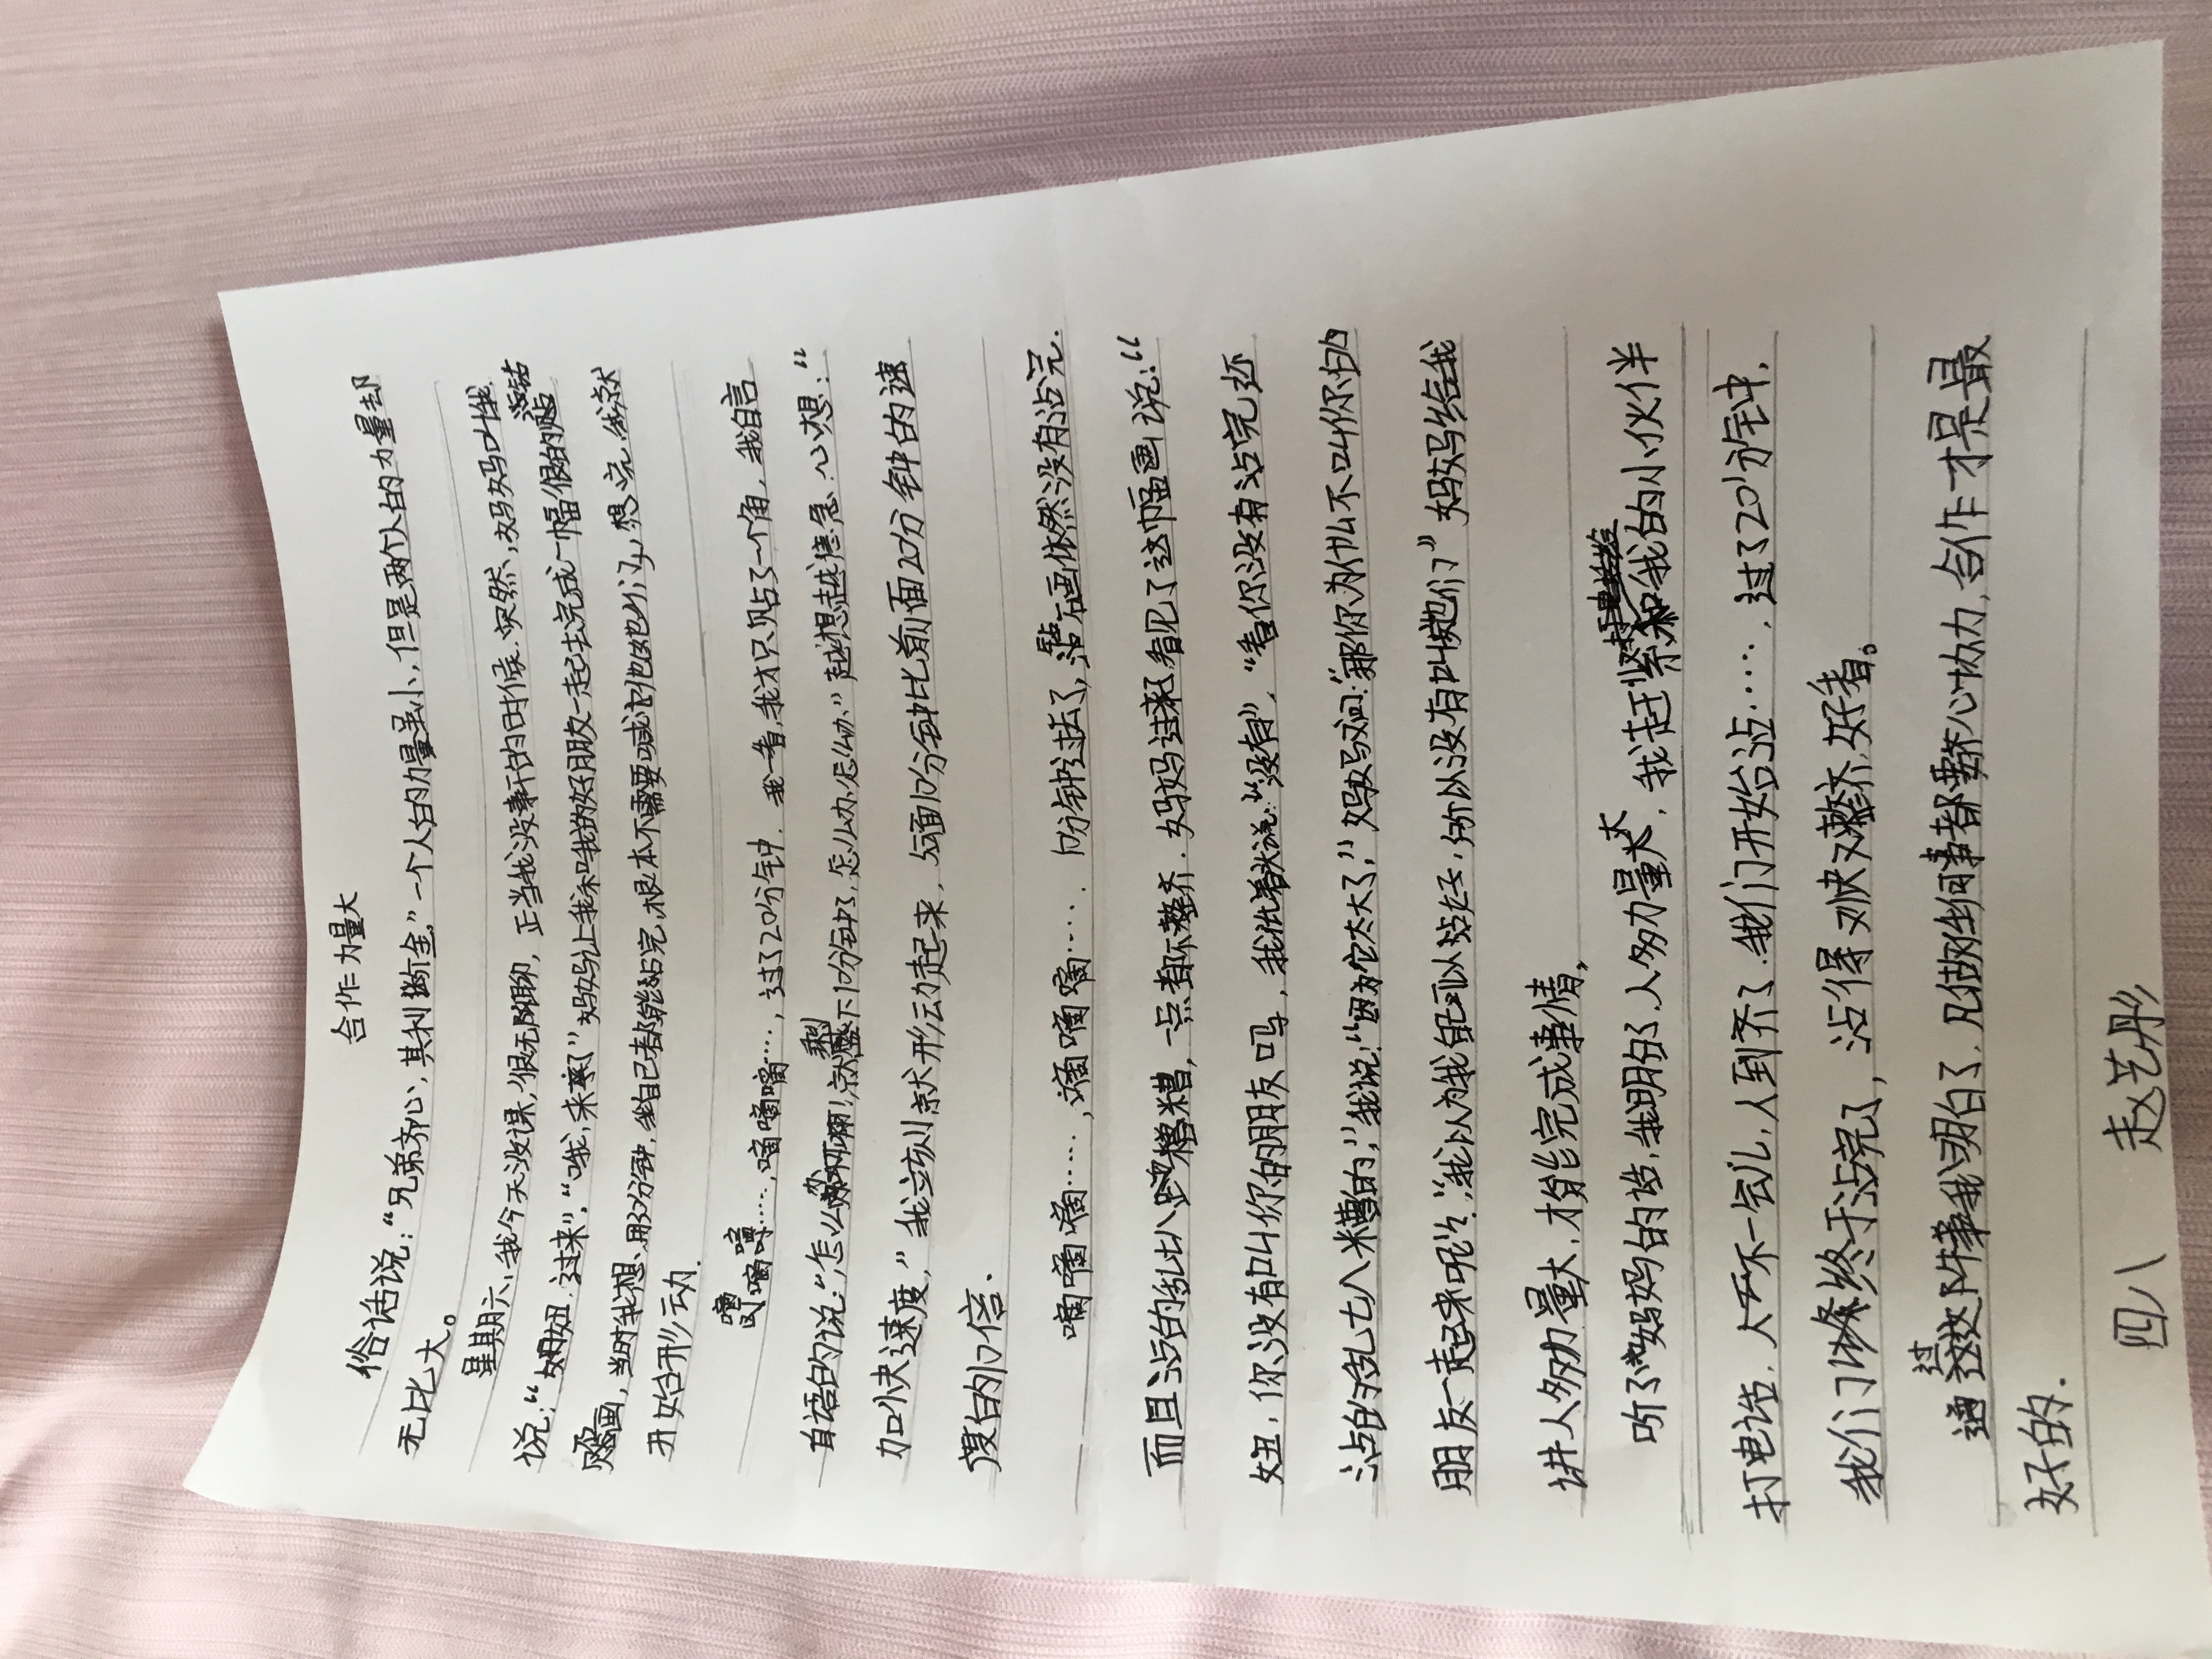 合作力量大
俗话说：“兄弟齐心，其利断金”一个人的力量虽小，但是两个人的力量却
无比大。
星期六，我今天没课，很无聊，正当我没事干的时候，突然，妈妈叫我
说：“妞妞，过来”，“哦，来了”妈妈让我和我的好朋友一起去完成一幅很的贴
画，当时我想，用分钟，我自己都能贴完，根本不需要喊他们，想完，我就
开始形动.
嘀嘀嘀……，嘀嘀嘀……，过了20分钟，我一看，我才只贴了一个角，我自言
自语的说：“怎么办啊！就剩下10分钟了，怎么办，怎么办，”越想越捉急，心想：“
加快速度，”我立刻就形动起来，后面10分钟比前面20分钟的速
度的10倍.
嘀嘀嘀……，嘀嘀嘀……，10分钟过去了，贴画依然没有沾完.
而且沾的乱七八糟，一点都不整齐，妈妈进来看见了这幅画说：“
妞，你没有叫你的朋友吗，我说：“没有”，“看你没有沾完还
沾的乱七八糟的，”我说：“因为它太大了，”妈妈问：“那你为什么不叫你的
朋友一起来呢？”“我以为我自己可以，所以没有叫她们”妈妈给我
讲人多力量大，才能完成事情，
听了妈妈的话，我明白了，人多力量大，我赶紧和我的小伙伴
打电话，人不一会儿，人到齐了，我们开始沾……，过了20分钟，
我们终于沾完了，沾得又快又整齐，好看。
通过这件事我明白了，凡做任何事都要齐心协力，合作才是最
好的.
四八 赵艺彤